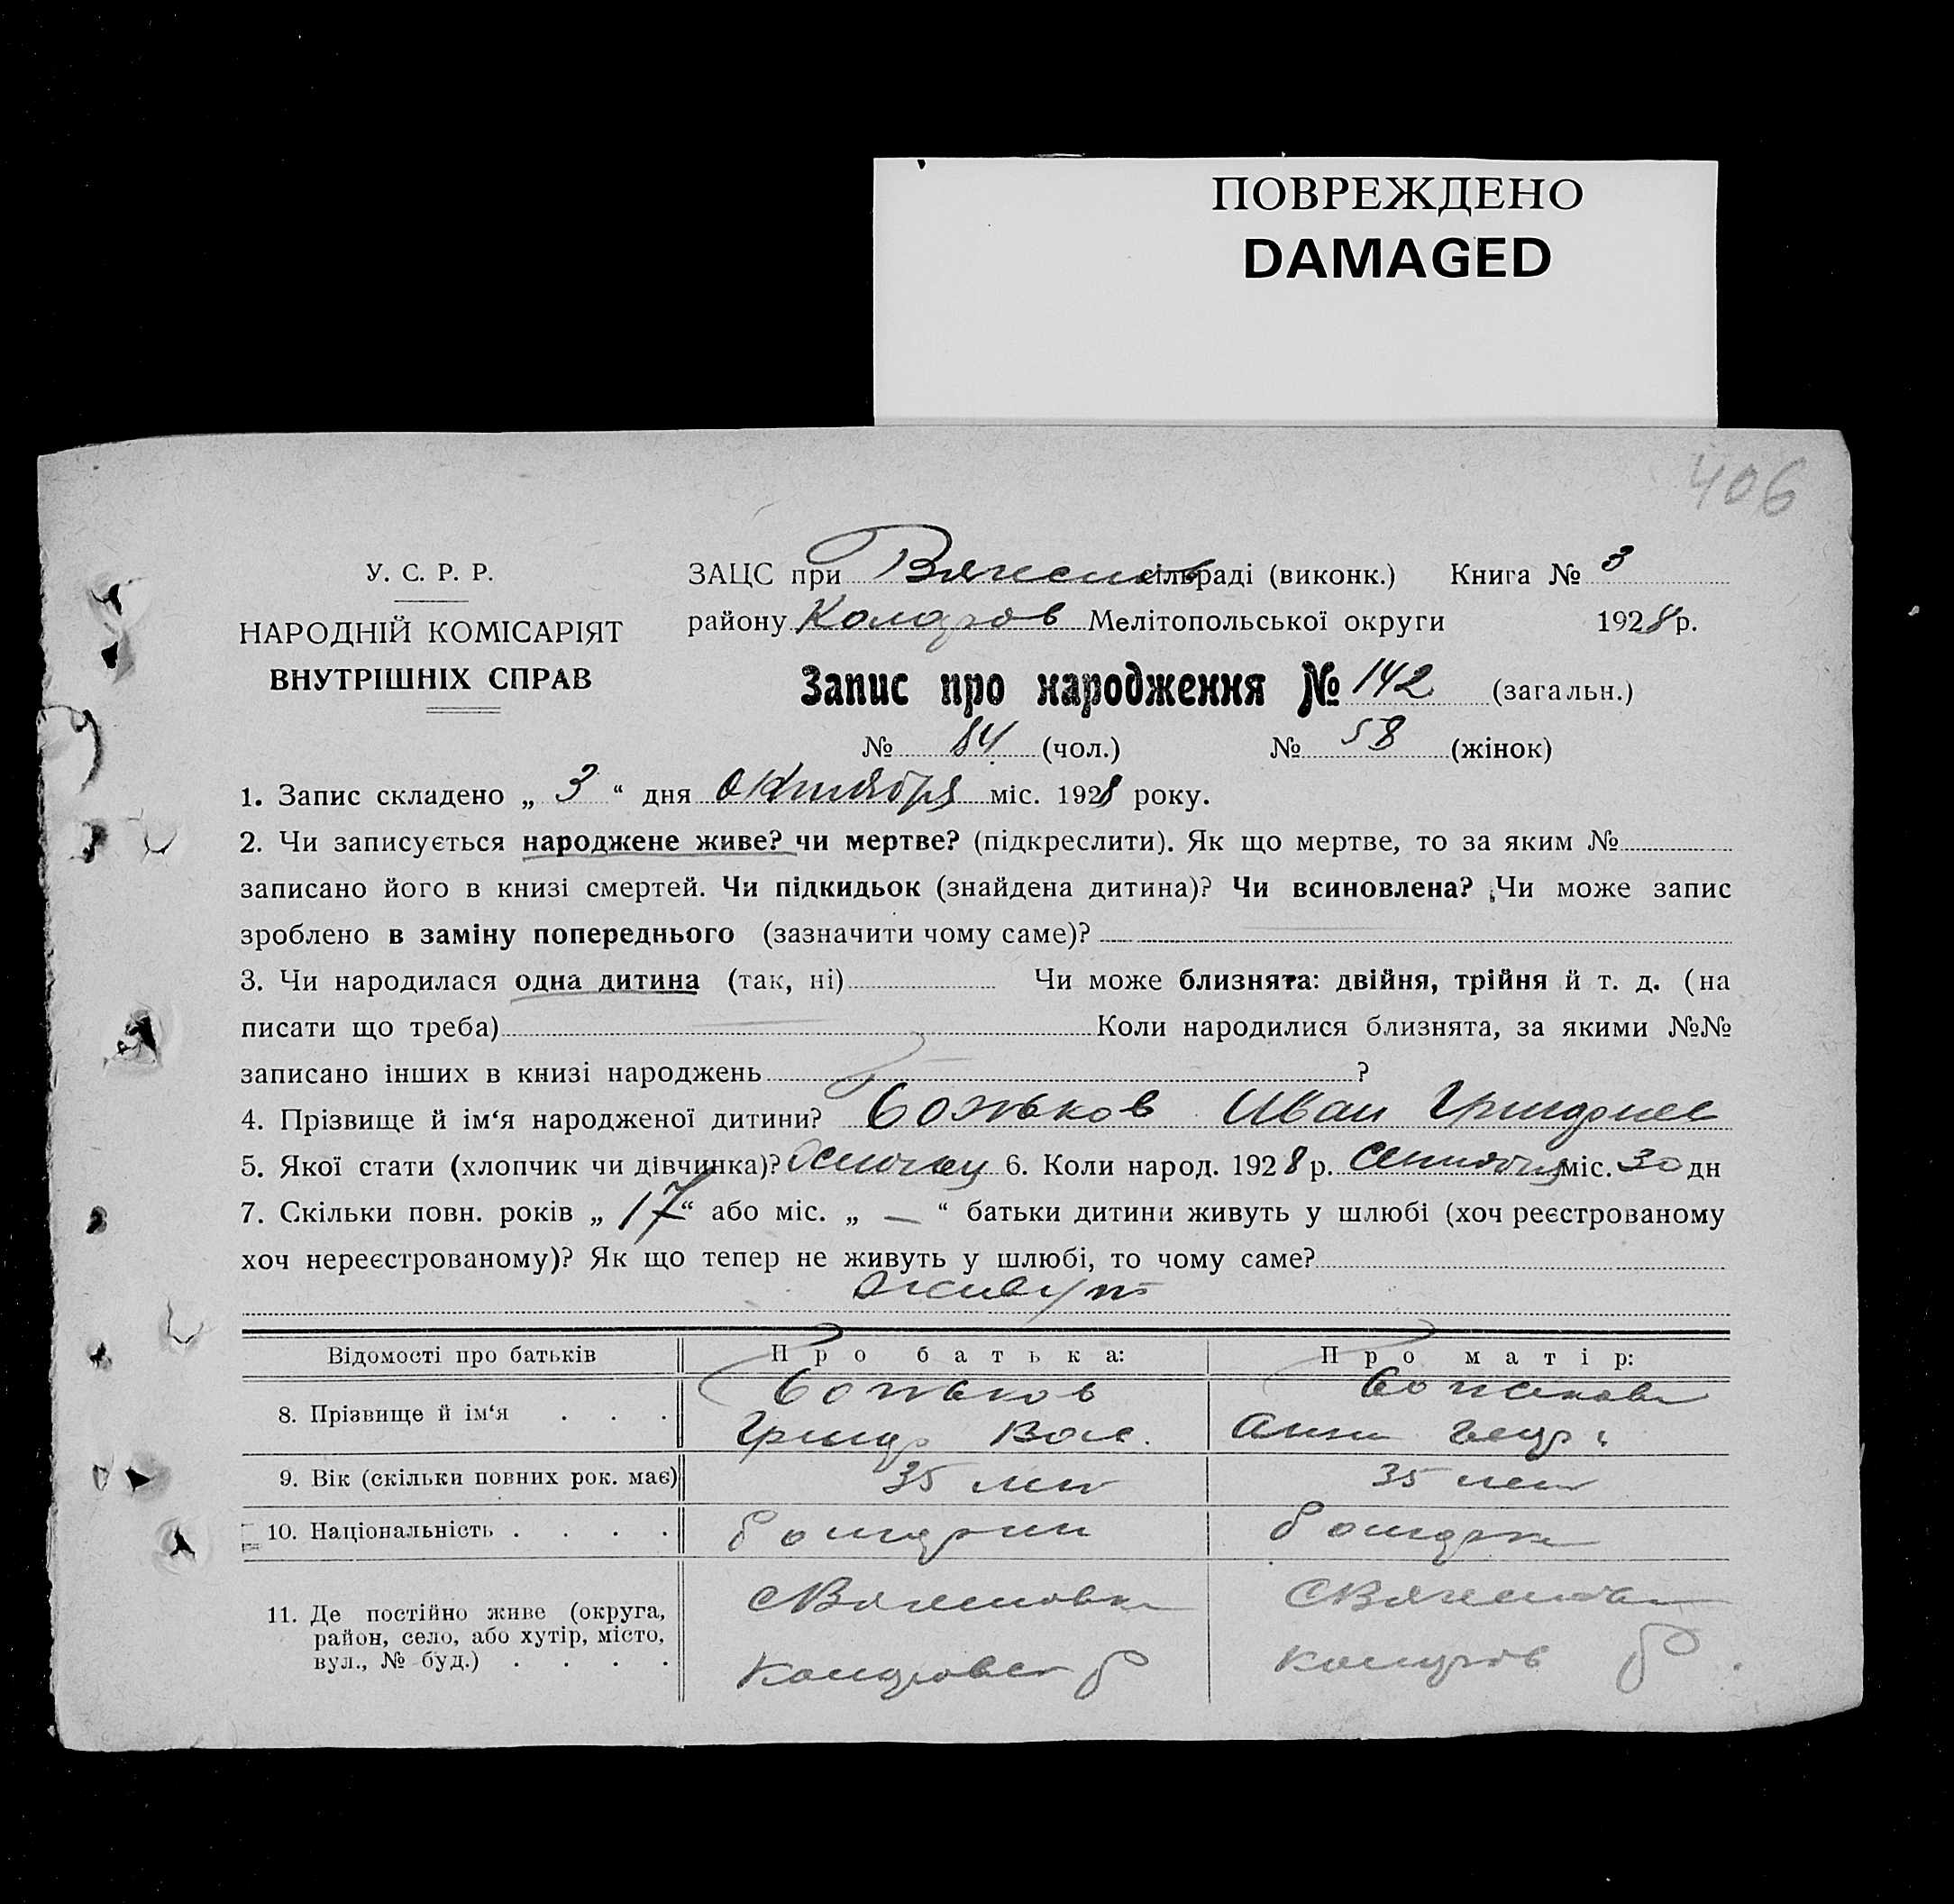 ПОВРЕЖДЕНО
DAMAGED
406
У. С. Р. Р.
НАРОДНІЙ КОМІСАРІЯТ
ВНУТРІШНІХ СПРАВ
ЗАЦС при сільраді (виконк.) Книга № 3
району Коларов Мелітопольської округи 1928 р.
Запис про народження № 142 (загальн.)
№ 84 (чол.) № 58 (жінок)
1. Запис складено „ 3 “ дня Октября міс. 1928 року.
2. Чи записується народжене живе? чи мертве? (підкреслити). Як що мертве, то за яким №
записано його в книзі смертей. Чи підкидьок (знайдена дитина)? Чи всиновлена? Чи може запис
зроблено в заміну попереднього (зазначити чому саме)?
3. Чи народилася одна дитина (так, ні) Чи може близнята: двійня, трійня й т. д. (на
писати що треба) Коли народилися близнята, за якими №№
записано інших в книзі народжень ?
4. Прізвище й ім‘я народженої дитини? Божков Иван
5. Якої стати (хлопчик чи дівчинка)? 6. Коли народ. 1928 р. Сентября міс. 30 дн
7. Скільки повн. років „ 17 “ або міс. „ — “ батьки дитини живуть у шлюбі (хоч реєстрованому
хоч нереєстрованому)? Як що тепер не живуть у шлюбі, то чому саме?
живут
Відомості про батьків Про батька: Про матір:
8. Прізвище й ім‘я . . . Божков Божкова
Вас. Анна
9. Вік (скільки повних рок. має) 35 лет 35 лет
10. Національність . . . . болгарин болгарка
11. Де постійно живе (округа,
район, село, або хутір, місто,
вул., № буд.) . . . .